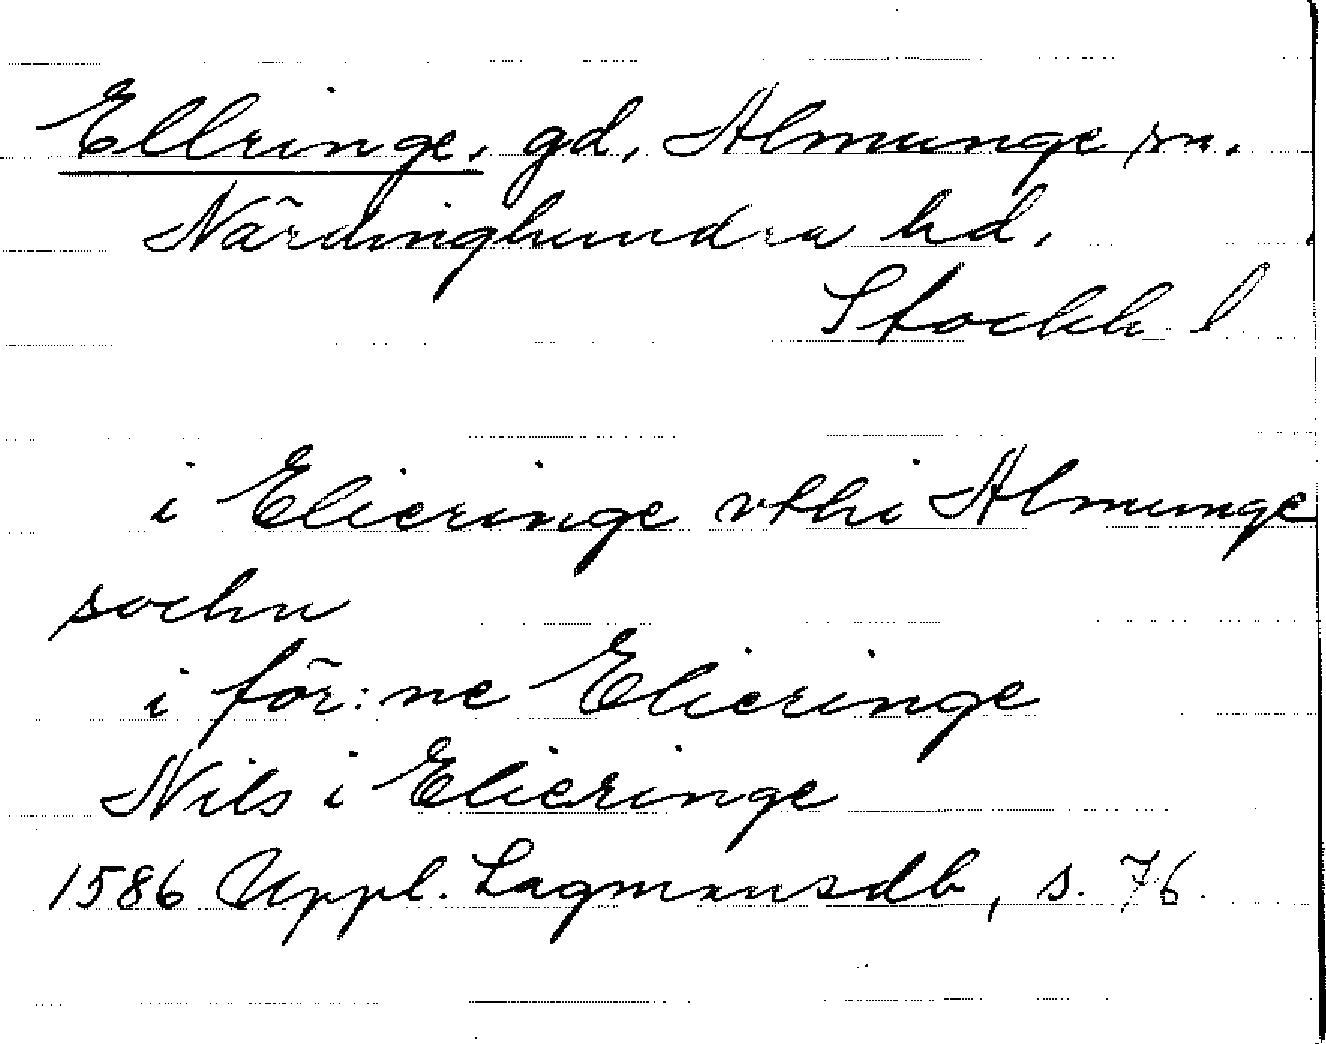 Ellringe, gd, Almunge sn.
Närdinghundra hd.
Stockh. l
i Elieringe vthi Almunge
sochn
i för:ne Elieringe
Nils i Elieringe
1586 Uppl. Lagmansdb, s. 76.